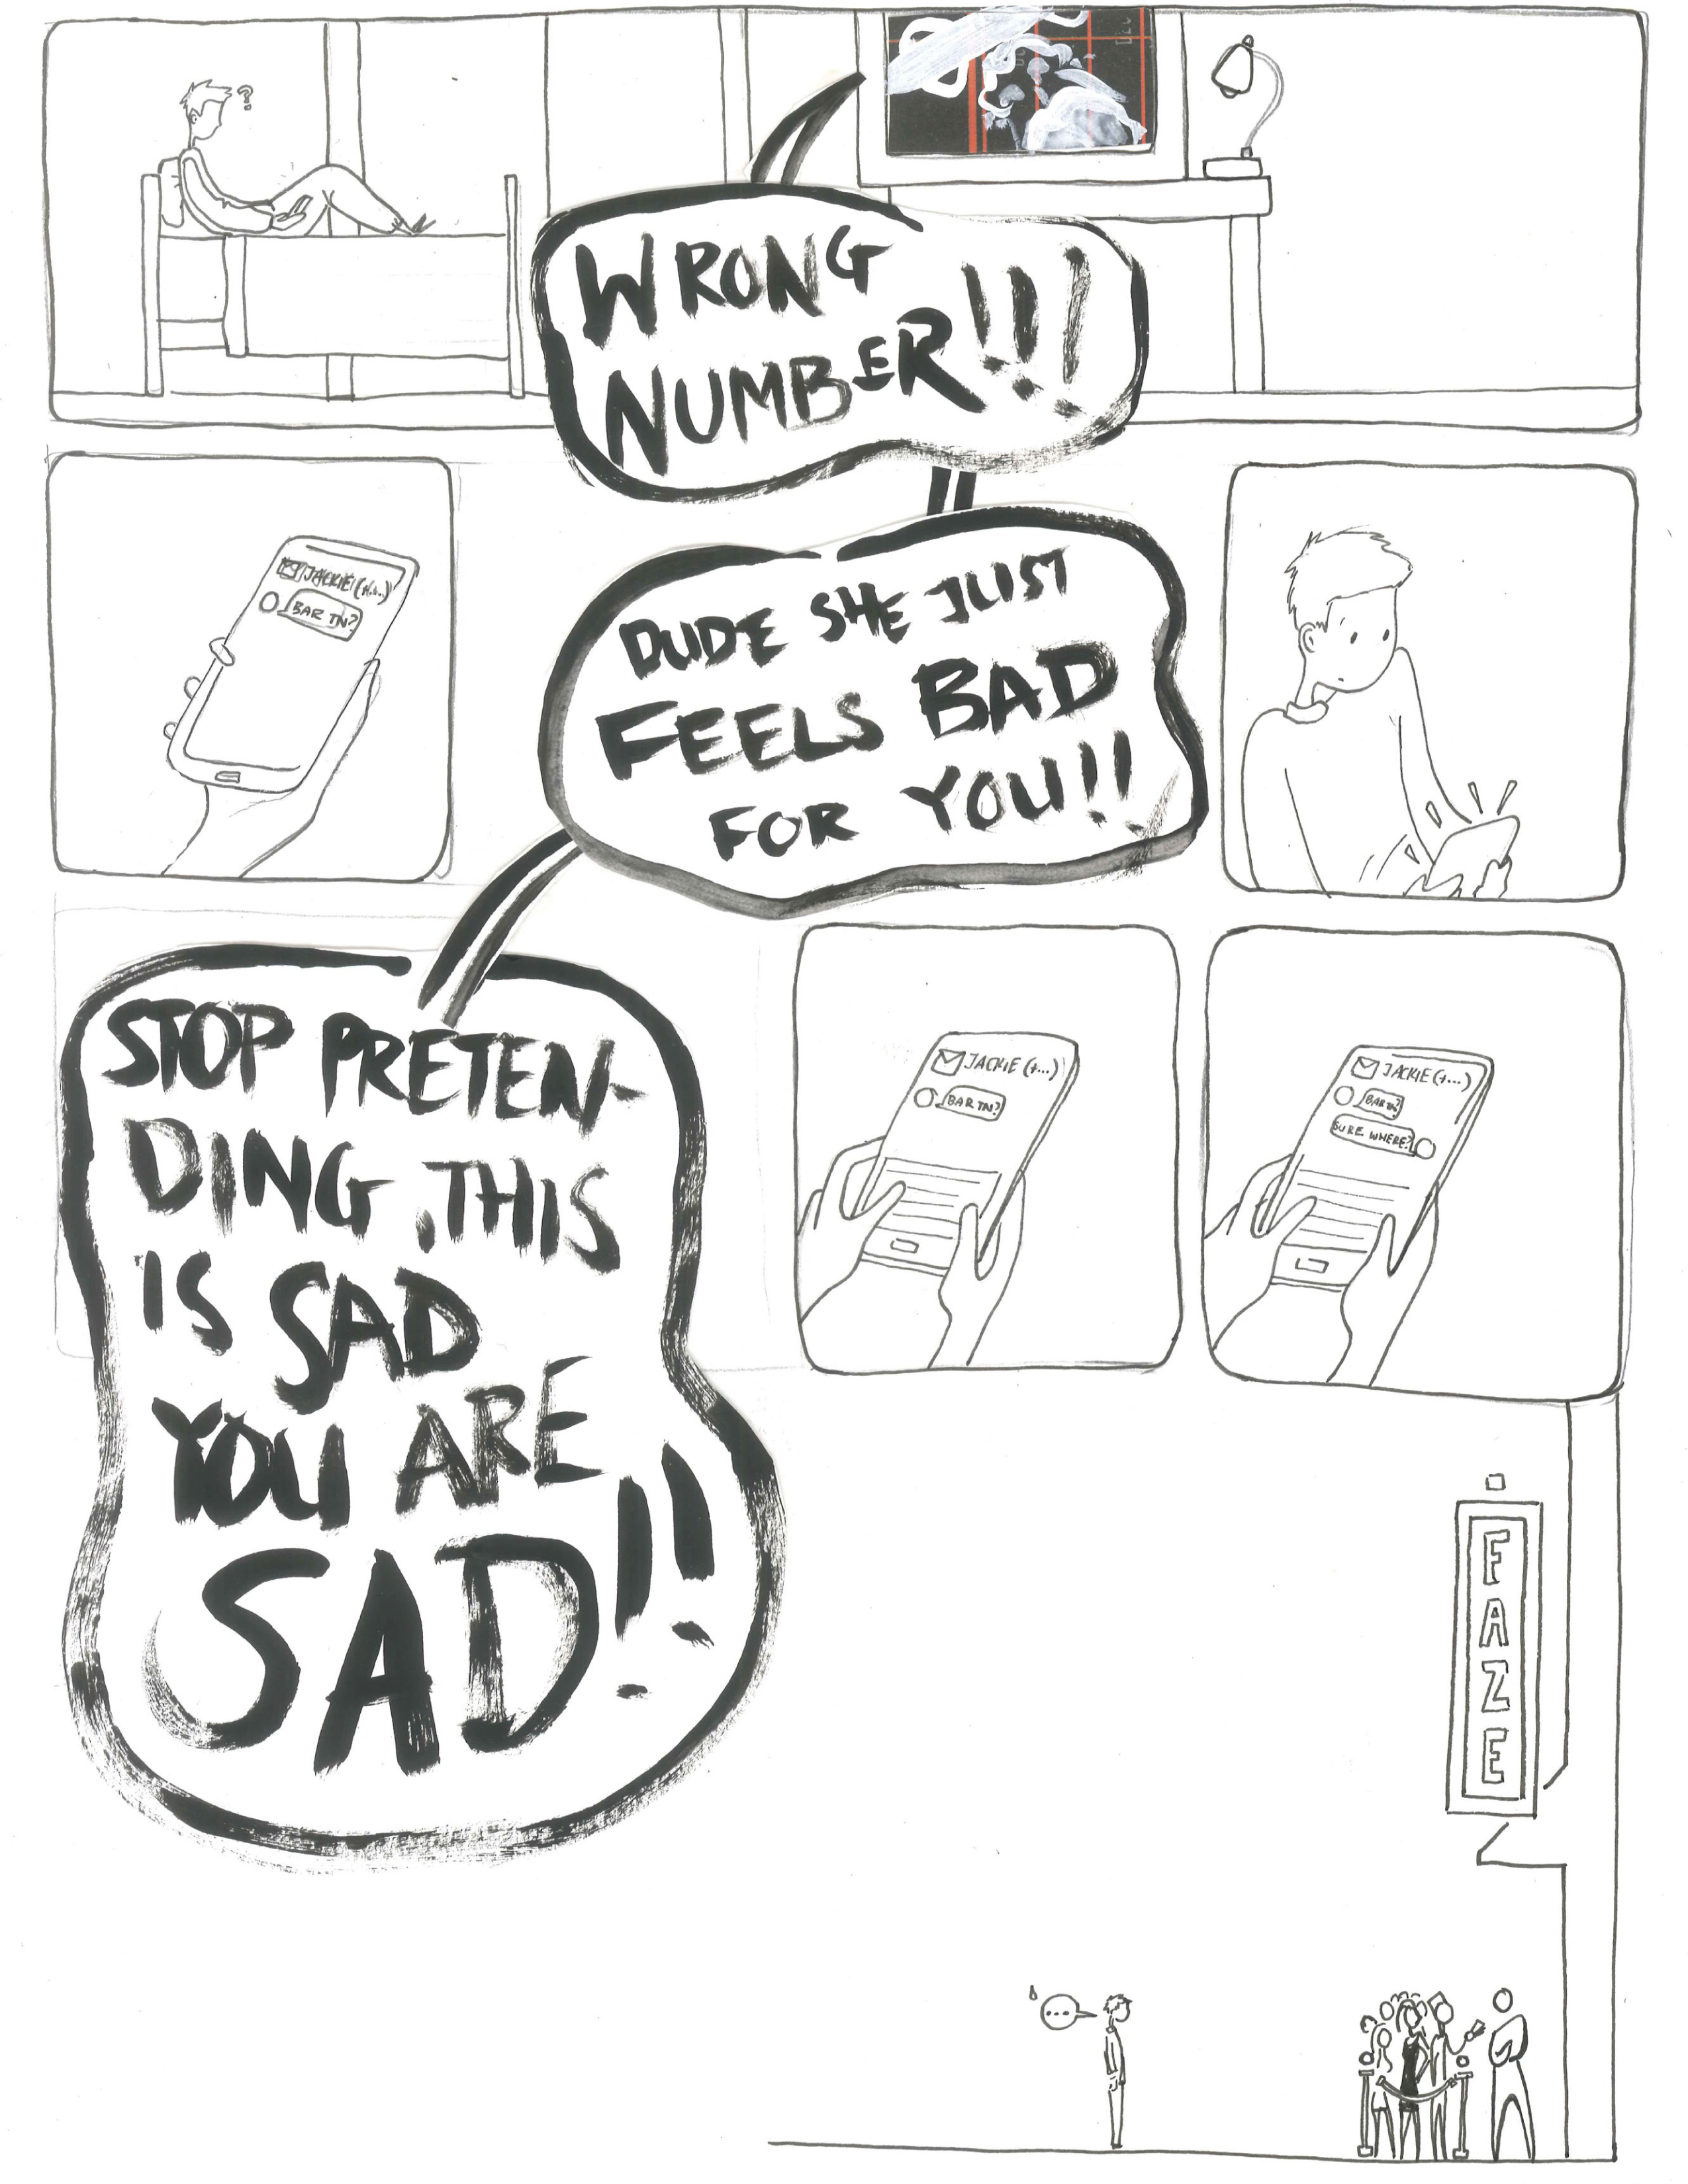 ?
WRONG
NUMBER!!!
JACKIE (+...)
BAR TN?
DUDE SHE JUST
FEELS BAD
FOR YOU!!
STOP PRETEN-
DING, THIS
IS SAD
YOU ARE
SAD!!
JACKIE (+...)
BAR TN?
JACKIE (+...)
BAR TN?
SURE WHERE?
FAZE
...